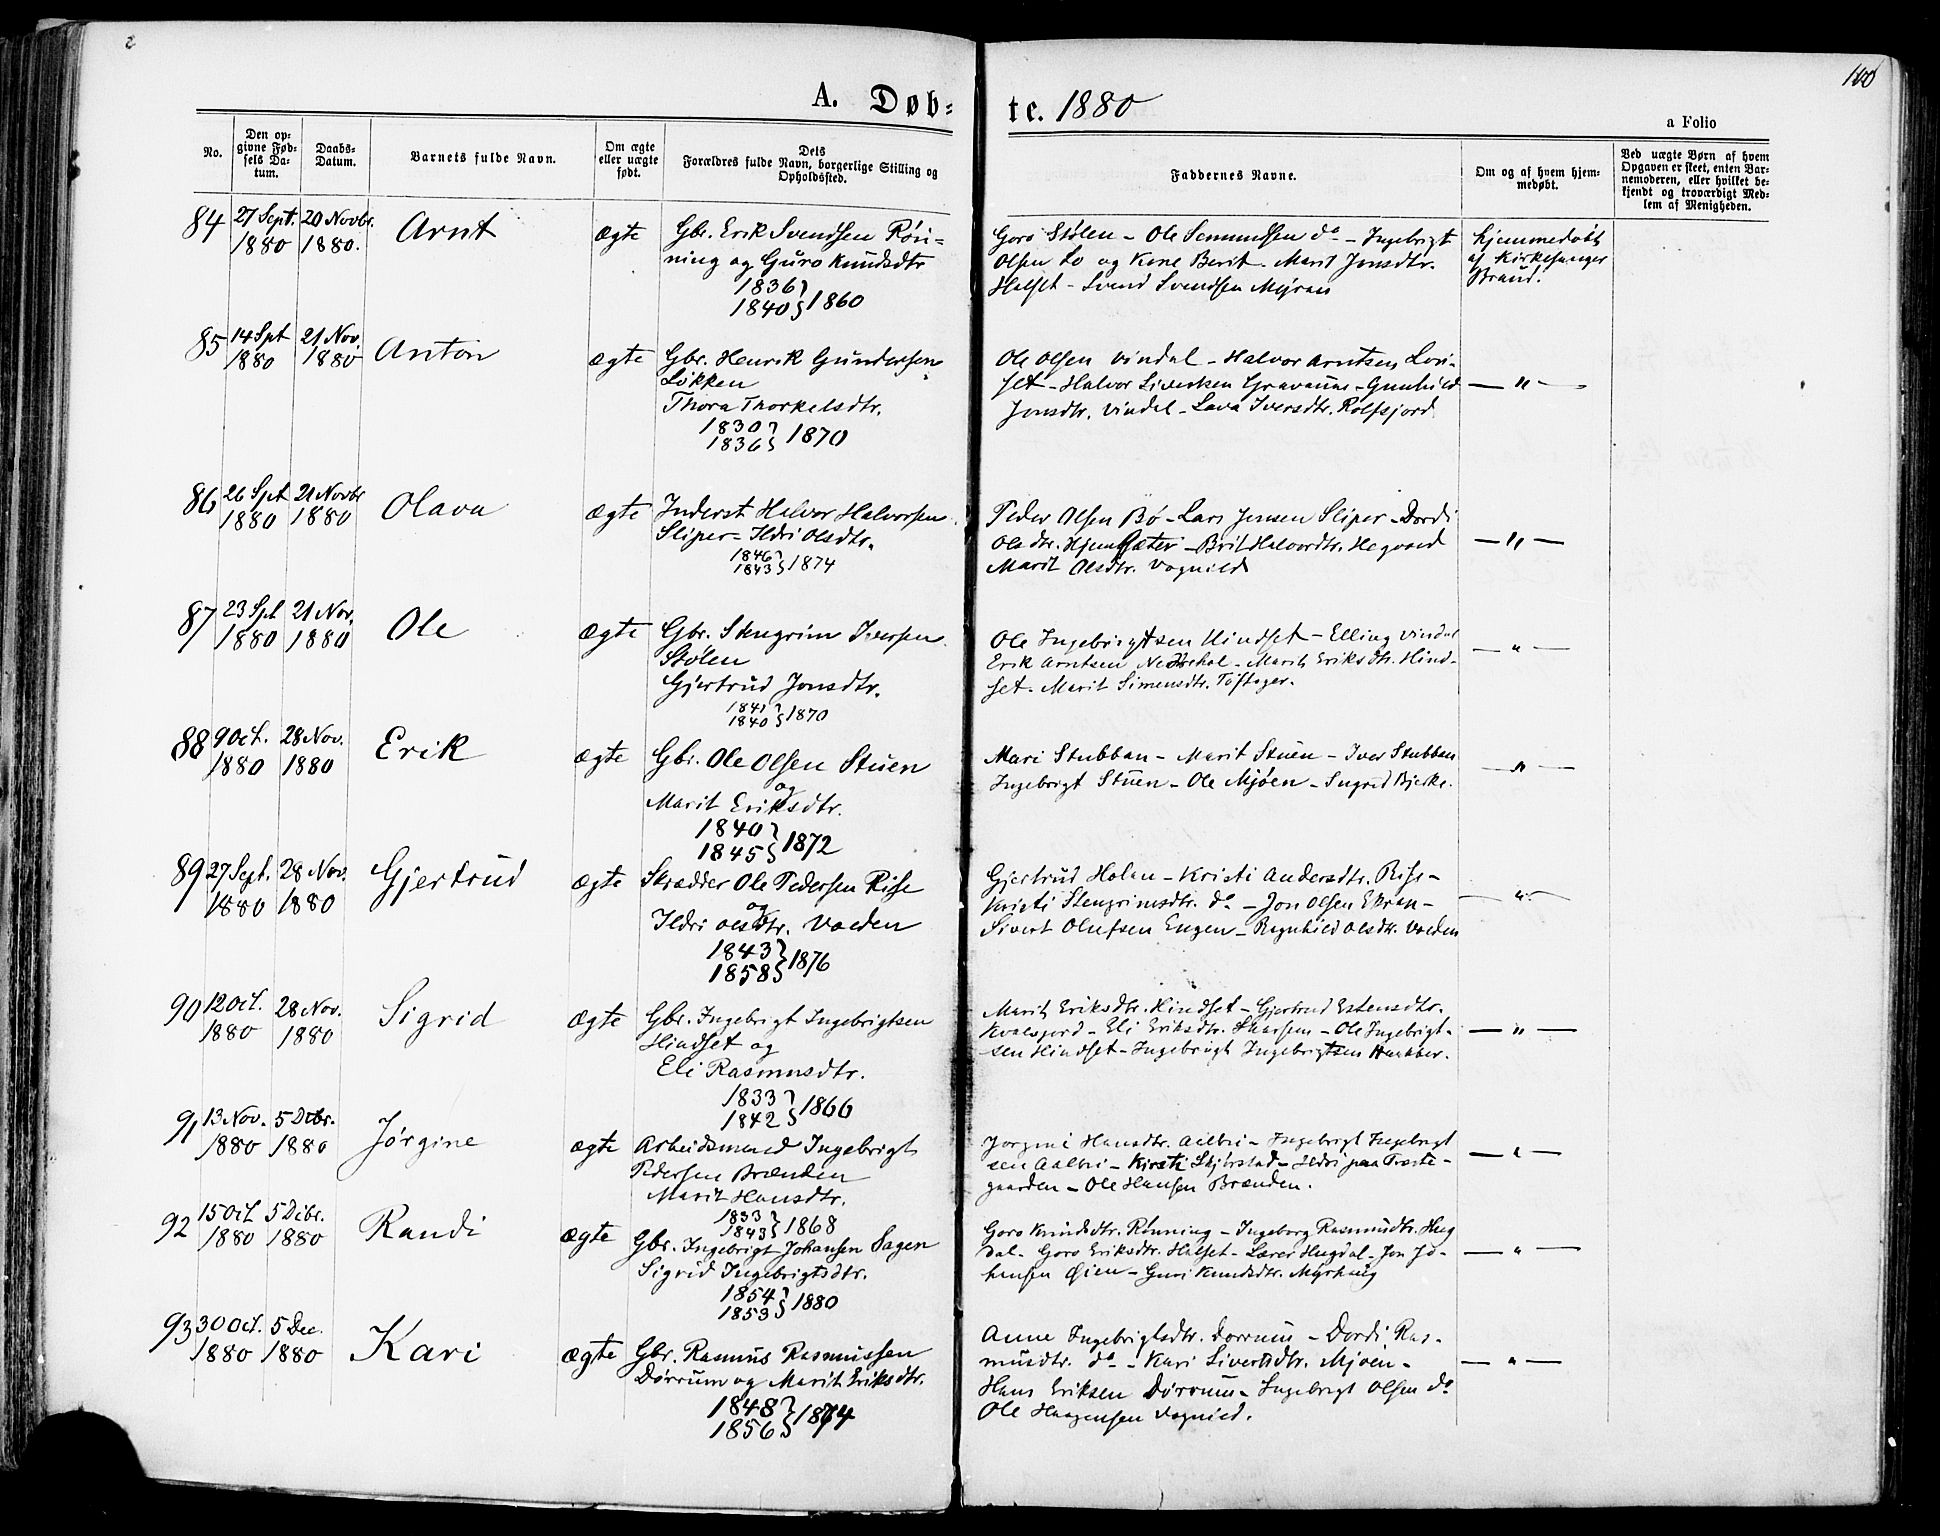 100
A. Døb= te. 1880
a Folio
No.
Den op-
givne Fød-
sels Da-
tum.
Daabs-
Datum.
Barnets fulde Navn.
Om ægte
eller uægte
født.
Dets
Forældres fulde Navn, borgerlige Stilling og
Opholdssted.
Faddernes Navne.
Om og af hvem hjem-
medøbt.
Ved uægte Børn af hvem
Opgaven er skeet, enten Bar-
nemoderen, eller hvilket be-
kjendt og troværdigt Med-
lem af Menigheden.
84 27 Sept. 1880 20 Novbr. 1880. Arnt ægte
Gbr. Erik Svendsen Røn-
ning og Guro Knudsdtr
1836
1840 } 1860
Goro Stølen - Ole Semundsen do - Ingebrigt
Olsen Lo og Kone Berit - Marit Jonsdtr.
Halset - Svend Svendsen Myran
hjemmedøbt
af Kirkesanger
Braud.
85 14 Spt 1880 21 Nov. 1880 Anton ægte
Gbr. Henrik Gundersen
Løkken
Thora Thorkelsdtr.
1830
1836 } 1870
Ole Olsen Vindal - Halvor Arntsen
set - Halvor Sivertsen - Gunhild
Jonsdtr. Vindal - Lava Iversdtr.
— " —
86 26 Spt 1880 21 Novbr 1880 Olava ægte
Inderst Halvor Halvorsen
Sliper - Ildri Olsdtr.
1846
1843 } 1874
Peder Olsen Bø - Lars Jensen Sliper - Dordi
Olsdtr. - Brit Halvordtr. Hevered
Marit Olsdtr. Vognild
— " —
87 23 Spt 1880 21 Nov. 1880 Ole ægte
Gbr. Stengrim Iversen
Stølen
Gjertrud Jonsdtr.
1841
1840 } 1870
Ole Ingebrigtsen Hindset - Elling Vindal
Erik Arntsen - Marit Eriksdtr. Hind-
set - Marit Simensdtr. Toftager.
— " —
88 9 Oct. 1880 28 Nov. 1880 Erik ægte
Gbr. Ole Olsen Stuen
og
Marit Eriksdtr.
1840
1845 } 1872
Mari Stubban - Marit Stuen - Iver Stubban
Ingebrigt Stuen - Ole Mjøen - Sigrid Bjerke.
— " —
89 27 Sept. 1880 28 Nov. 1880 Gjertrud ægte
Skrædder Ole Pedersen Rise
og
Ildri Olsdtr. Voeden
1843
1858 } 1876
Gjertrud Holen - Kristi Andersdtr. Rise -
Kristi Stengrimsdtr. do - Jon Olsen Ekran -
Sivert Olufsen Engen - Ragnhild Olsdtr. Voeden
— " —
90 12 Oct. 1880 28 Nov. 1880 Sigrid ægte
Gbr. Ingebrigt Ingebrigtsen
Hindset og
Eli Rasmusdtr.
1833
1842 } 1866
Marit Eriksdtr. Hindset - Gjertrud Estensdtr.
- Eli Eriksdtr. - Ole Ingebrigt-
sen Hindset - Ingebrigt Ingebrigtsen
— " —
91 13 Nov. 1880 5 Dcbr. 1880 Jørgine ægte
Arbeidsmand Ingebrigt
Pedersen Brænden
Marit Hansdtr.
1833
1843 } 1868
Jørgine Hansdtr. Aalbu - Ingebrigt Ingebrigt
sen Aalbu - Kirsti Skjørstad - Ildri paa Præste-
gaarden - Ole Hansen Brænden.
— " —
92 15 Oct 1880 5 Dcbr. 1880 Randi ægte
Gbr. Ingebrigt Johansen Sagen
Sigrid Ingebrigtsdtr.
1854
1853 } 1880
Goro Knudsdtr. Rønning - Ingeborg Rasmusdtr. Hug
dal - Goro Eriksdtr. Halset - Lærer Hugdal - Jon Jo-
hansen Øien - Guri Knudsdtr. Myrhaug
— " —
93 30 Oct. 1880 5 Dec. 1880 Kari ægte
Gbr. Rasmus Rasmussen
Dørrum og Marit Eriksdtr.
1848
1856 } 1874
Anne Ingebrigtsdtr. Dørrum - Dordi Ras-
musdtr. do - Kari Sivertsdtr. Mjøen -
Hans Eriksen Dørrum - Ingebrigt Olsen do
Ole Haagensen Vognild.
— " —